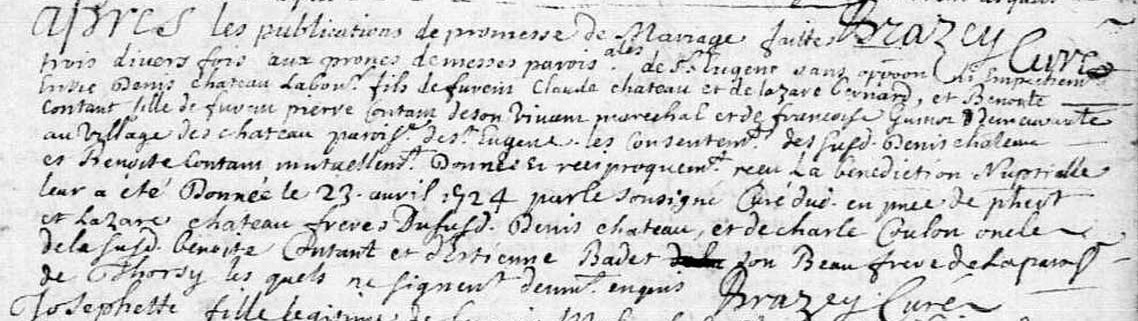 apres les publications de promesse de Mariage faittes Brazey Curé
trois divers fois aux prones de messes parois.ales de St Eugene sans oppoon ni Empechem.
Entre Denis chateau Labon.r fils de fureni Claude chateau et de lazare bernard, et Benoite
Contant fille de fureni pierre Contant de son vivant marechal et de francoise Gumot Demeurante
au village des chateau parois.e de St Eugene. les Consentem.t des susd. Denis chateau
et Benoite Contant mutuellem.t Donnés Et reciproquem.t receu La benediction Nuptialle
leur a eté Donneé le 23. avril 1724 par le soussigné Curé dud. en pnce de phert
et Lazare chateau freres Dususd. Denis chateau, et de charle Coulon oncle
de la susd. benoite Contant et d'Estienne Badet son Beau frere de La parois.
de Thorsy les quels ne signent deumt. enquis Brazey Curé
Josephette fille legitime de